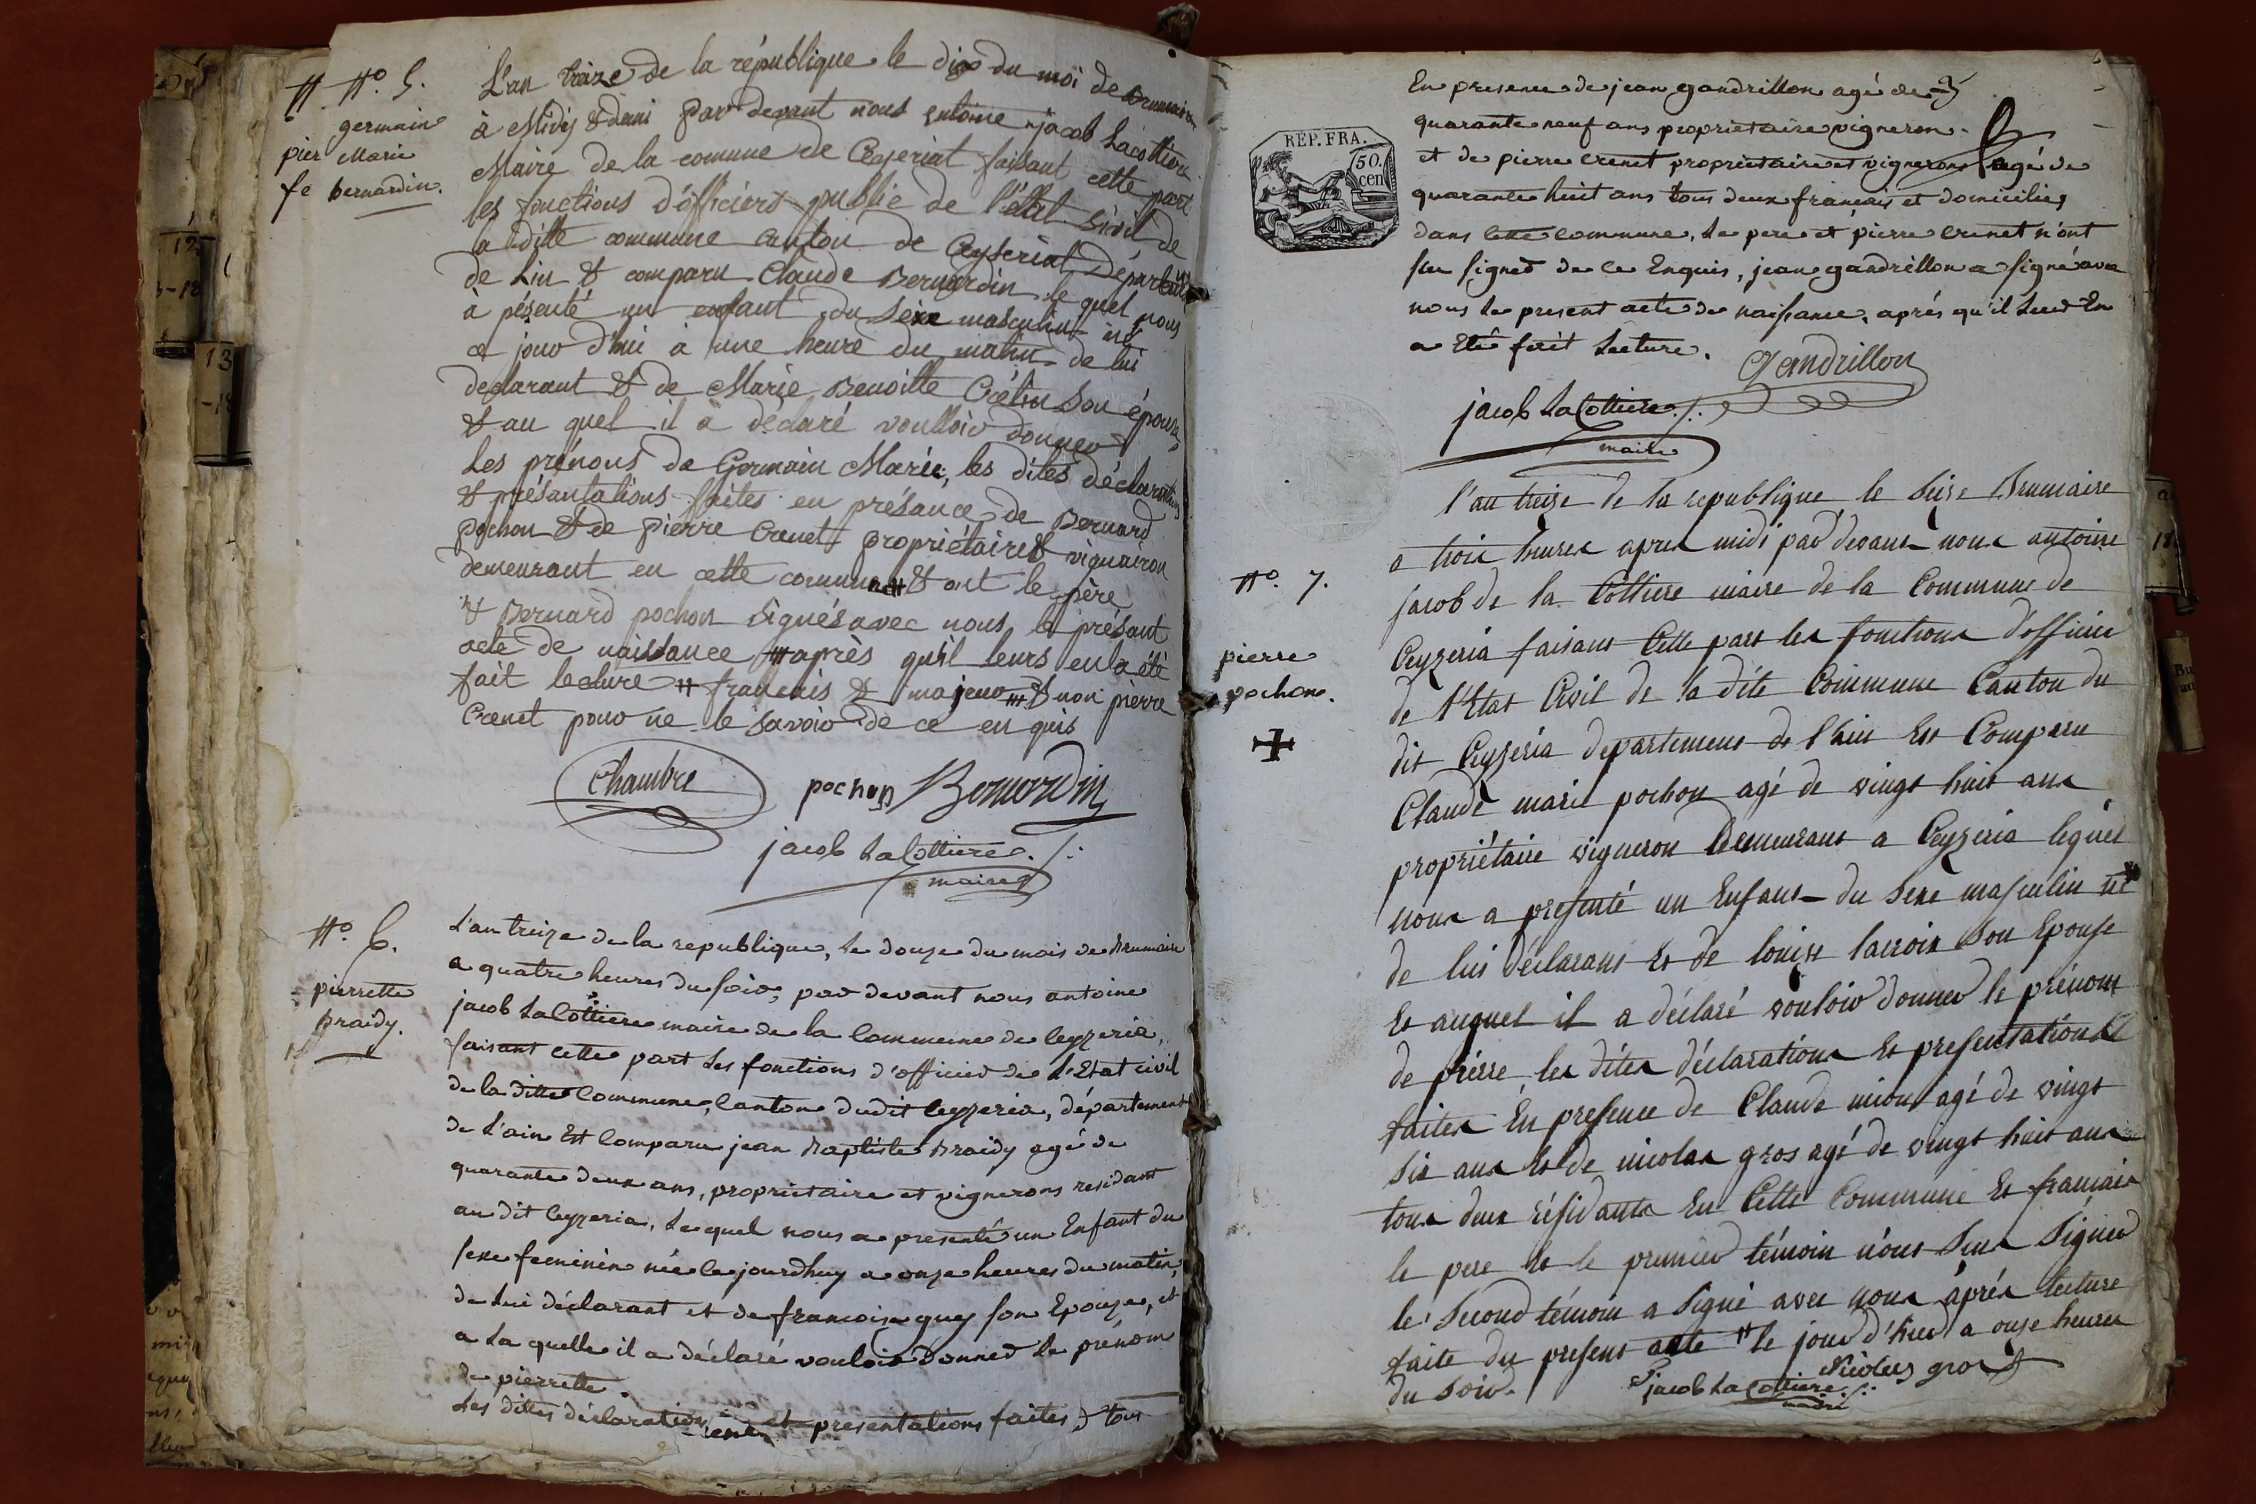 N° 5.
germain
pier Marie
fe bernardin.
L'an treize de la république le dix du moi de brumaire
à Midij & demi par devant nous antoine jacob Lacottiere
Maire de la comune de Ceyseriat faisant cette part
les fonctions d'officiers public de l'état sivil de
la ditte commune canton de Ceyseriat Départem
de Lin & comparu Claude Bernardin le quel nous
à pésenté un enfant du sèxe masculin né
ce jour d'hui à une heure du matin de lui
declarant & de Marie Benoitte son épouse
& au quel il à déclaré voulloir donner
Les prénous de Germain Marie, les dites déclarations
& présantations faites en présance de Bernard
pochon & de pierre Crenet propriétaires vignairon
demeurant en cette commune # & ont le père
& Bernard pochon signés avec nous le présant
acte de naissance ## après qu'il leurs en a été
fait lecture # français & majeur ## & non pierre
Crenet pour ne le savoir de ce en quis
Chambre pochon Bernardin
jacob La Cottiere
maire
N° 6.
pierrette
praidy.
L'an treize de la republique, le douze du mois de Brumaire
a quatre heures du soir, par devant nous antoine
jacob La Cottiere maire de la Commune de Ceyzeria,
faisant cette part les fonctions d'officier de L'Etat civil
de la ditte Commune, Canton dudit Ceyzeria, département
de L'ain Est Comparu jean Baptiste Braidy agé de
quarante deux ans, proprietaire et vignerons residant
au dit Ceyzeria, Lequel nous a presenté un Enfant du
sexe feminin née Le jourdhuy a onze heures du matin,
de Lui déclarant et de francoise guy son Epouze, et
a La quelle il a déclaré vouloir donner Le prénom
de pierrette.
Les dittes déclaration et presentations faites, tous
En presence de jean gandrillon agé de
quarante neuf ans proprietaire vigneron
et de pierre crenet proprietaire et vignerons agé de
quarante huit ans tous deux français et domiciliés
dans Cette Commune, Le pere et pierre crenet n'ont
su signer de ce Enquis, jean gandrillon a signé avec
nous Le present acte de naissance, aprés qu'il Leur En
a Eté fait Lecture.
gandrillon
jacob La Cottiere
maire
REP. FRA.
50.
cen
N° 7.
pierre
pochon.
l'an treize de la republique le seize Brumaire
a trois heures apres midi par devant nous antoine
jacob de la Cottiere maire de la Commune de
Ceyzeria faisant Cette part les fonctions d'officier
de l'Etat Civil de la dite Commune Canton du
dit Ceyzeria departement de l'ain Est Comparu
Claude marie pochon agé de vingt huit ans
propriétaire vigneron demeurant a Ceyzeria lequel
nous a presenté un Enfant du sexe masculin né #
de lui déclarant Et de louise lacroix son Epouse
Et auquel il a déclaré vouloir donner le prénom
de pierre, les dites déclarations Et presentations
faites En presence de Claude mion agé de vingt
six ans Et de nicolas gros agé de vingt huit ans
tous deux résidants En Cette Commune Et français
le pere Et le premier témoin n'ont sçus signer
le second témoin a signé avec nous après lecture
faite du present acte # le jour d'hier a onze heures
du soir.
Nicolas gros
jacob La Cottiere
maire
12
13